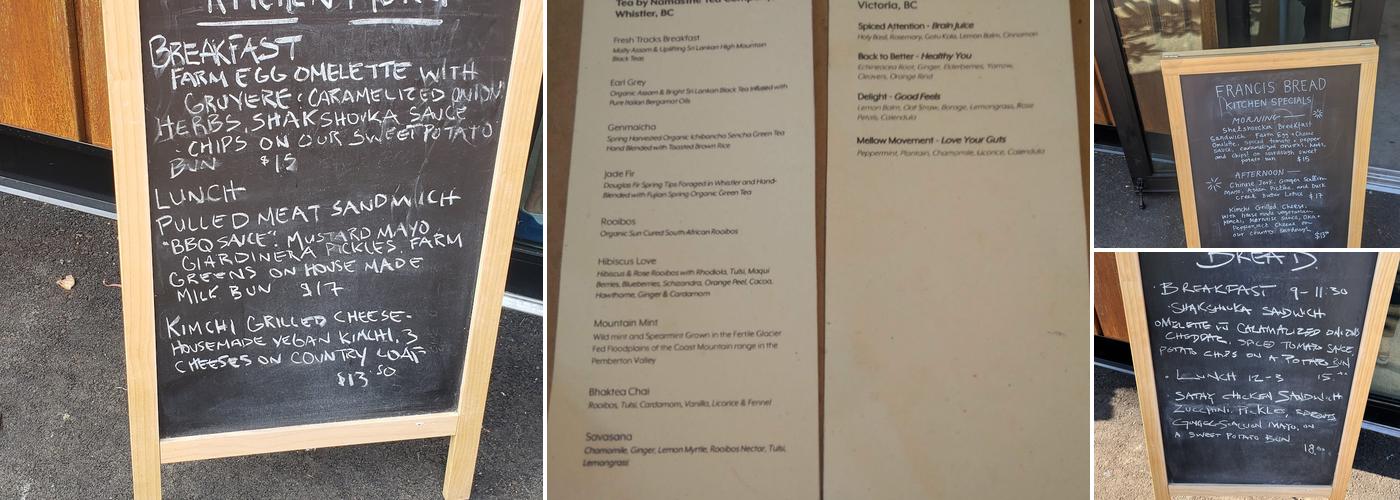 KITCHEN MENU
BREAKFAST
FARM EGG OMELETTE WITH
GRUYERE & CARAMELIZED ONION
HERBS, SHAKSHOUKA SAUCE
CHIPS ON OUR SWEET POTATO
BUN $15
LUNCH
PULLED MEAT SANDWICH
"BBQ SAUCE". MUSTARD MAYO
GIARDINERA PICKLES. FARM
GREENS ON HOUSE MADE
MILK BUN $17
KIMCHI GRILLED CHEESE-
HOUSEMADE VEGAN KIMCHI, 3
CHEESES ON COUNTRY LOAF
$13.50
Tea by Namasthe Tea Company,
Whistler, BC
Fresh Tracks Breakfast
Malty Assam & Uplifting Sri Lankan High Mountain
Black Teas
Earl Grey
Organic Assam & Bright Sri Lankan Black Tea Infused with
Pure Italian Bergamot Oils
Genmaicha
Spring Harvested Organic Ichibancha Sencha Green Tea
Hand Blended with Toasted Brown Rice
Jade Fir
Douglas Fir Spring Tips Foraged in Whistler and Hand-
Blended with Fujian Spring Organic Green Tea
Rooibos
Organic Sun Cured South African Rooibos
Hibiscus Love
Hibiscus & Rose Rooibos with Rhodiola, Tulsi, Maqui
Berries, Blueberries, Schizandra, Orange Peel, Cacoa,
Hawthorne, Ginger & Cardamom
Mountain Mint
Wild mint and Spearmint Grown in the Fertile Glacier
Fed Floodplains of the Coast Mountain range in the
Pemberton Valley
Bhaktea Chai
Rooibos, Tulsi, Cardamom, Vanilla, Licorice & Fennel
Savasana
Chamomile, Ginger, Lemon Myrtle, Rooibos Nectar, Tulsi,
Lemongrass
Victoria, BC
Spiced Attention - Brain Juice
Holy Basil, Rosemary, Gotu Kola, Lemon Balm, Cinnamon
Back to Better - Healthy You
Echineacea Root, Ginger, Elderberries, Yarrow,
Cleavers, Orange Rind
Delight - Good Feels
Lemon Balm, Oat Straw, Borage, Lemongrass, Rose
Petals, Calendula
Mellow Movement - Love Your Guts
Peppermint, Plantain, Chamomile, Licorice, Calendula
FRANCIS BREAD
KITCHEN SPECIALS
MORNING
Shakshouka Breakfast
Sandwich. Farm Egg + Cheese
Omelette, spiced tomato + pepper
sauce, caramelized onions, herbs,
and chips on sourdough sweet
potato bun $15
AFTERNOON
Chinese Jerk, Ginger Scallion
Mayo, Asian Pickle, and Duck
Creek Butter Lettuce $17
Kimchi Grilled Cheese,
with house made vegetarian
kimchi, sauce,
Cheese on
our country sourdough.
$13.50
BREAD
· BREAKFAST 9-11:30
SHAKSHUKA SADWICH
OMELETTE W CALAMALIZED ONIONS
CHEDDAR, SPICED TOMATO SAUCE,
POTATO CHIPS ON A POTATO BUN
15.
· LUNCH 12-3
SATAY CHICKEN SANDWICH
ZUCCHINI, PICKLE, SPROUTS
MAYO, ON
A SWEET POTATO BUN
18.